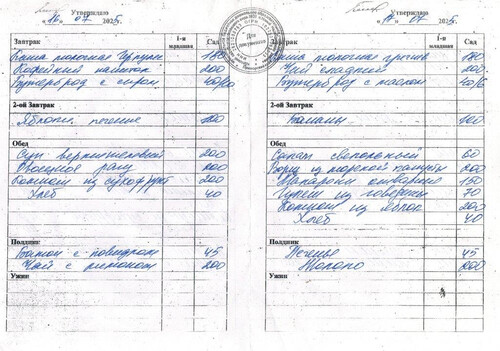 Утверждаю
"16" 07 2025
Завтрак
1-я младшая
Сад
Каша молочная 180
Кофейный напиток 200
Бутерброд с сыром 40/10
2-ой Завтрак
Яблоки, печенье 100
Обед
Суп вермишелевый 200
Овощное рагу 200
Компот из сухофрукт 200
Хлеб 40
Полдник
Батон с повидлом 45
Чай с лимоном 200
Ужин
Утверждаю
07 2025
Завтрак
1-я младшая
Сад
Каша молочная гречнев 180
Чай сладкий 200
Бутерброд с маслом
2-ой Завтрак
Бананы 100
Обед
Салат свекольный 60
Борщ из морской капусты 200
Макароны отварные 150
Гуляш из говядины 70
Компот из яблок 200
Хлеб 40
Полдник
Печенье 45
Молоко 200
Ужин
Для документов